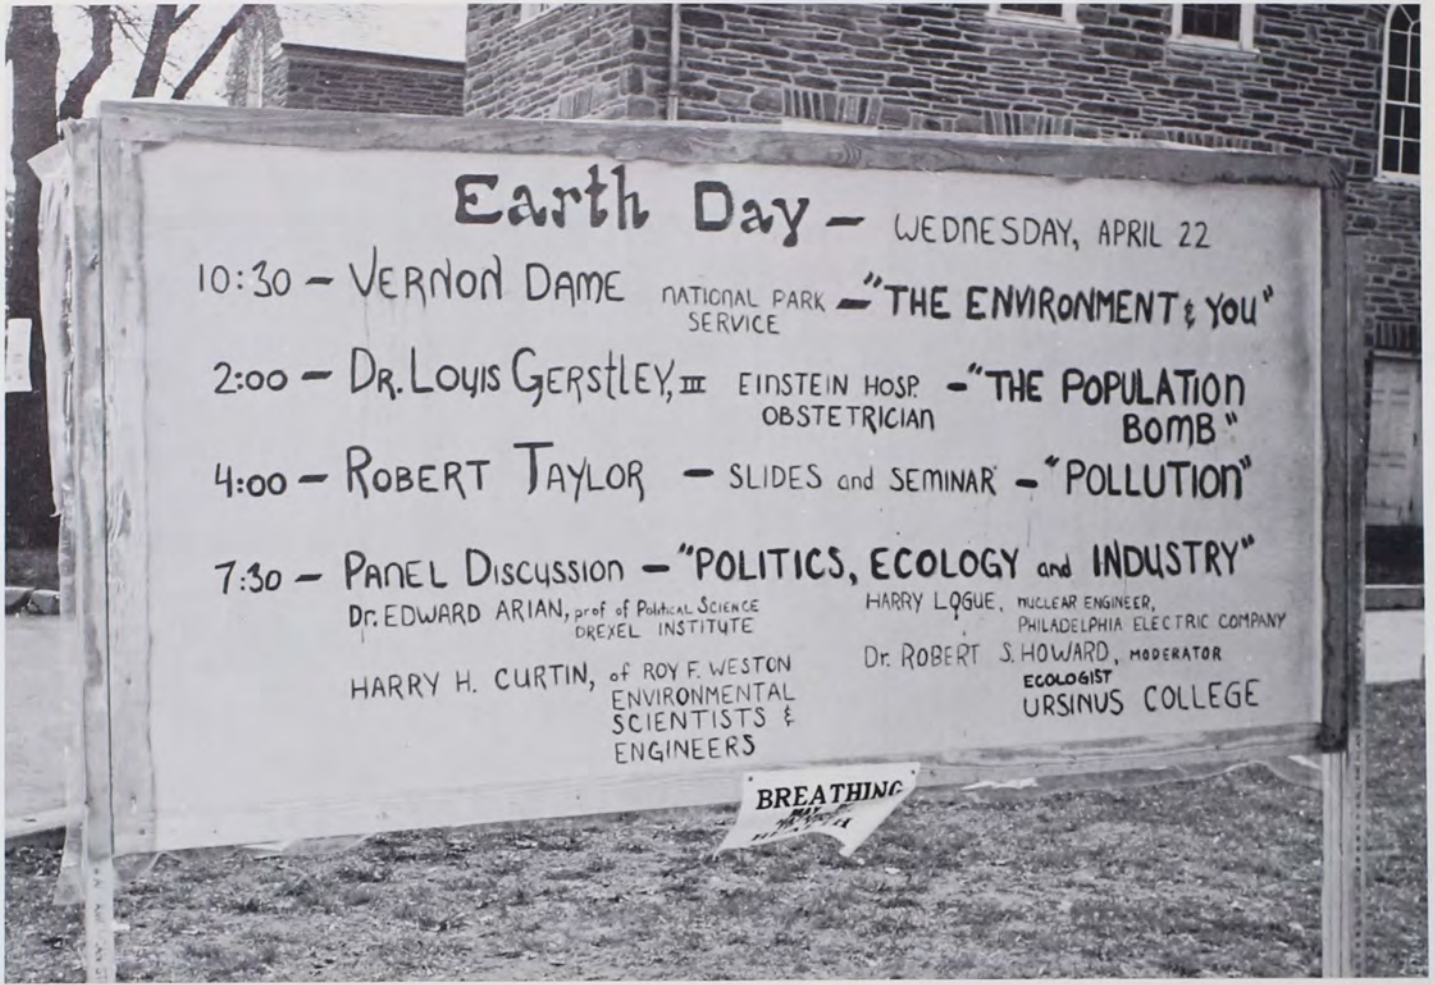 Earth Day – WEDNESDAY, APRIL 22
10:30 – VERNON DAME NATIONAL PARK SERVICE – "THE ENVIRONMENT & YOU"
2:00 – DR. LOUIS GERSTLEY, III EINSTEIN HOSP. OBSTETRICIAN – "THE POPULATION BOMB"
4:00 – ROBERT TAYLOR – SLIDES and SEMINAR – "POLLUTION"
7:30 – PANEL DISCUSSION – "POLITICS, ECOLOGY and INDUSTRY"
Dr. EDWARD ARIAN, prof of Political SCIENCE
DREXEL INSTITUTE
HARRY H. CURTIN, of ROY F. WESTON
ENVIRONMENTAL
SCIENTISTS &
ENGINEERS
HARRY LOGUE, NUCLEAR ENGINEER,
PHILADELPHIA ELECTRIC COMPANY
Dr. ROBERT S. HOWARD, MODERATOR
ECOLOGIST
URSINUS COLLEGE
BREATHING
MAY BE